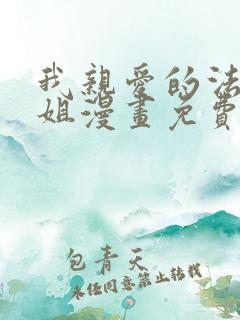 我親愛的法
姐漫畫免費
包青天
未经同意禁止转载